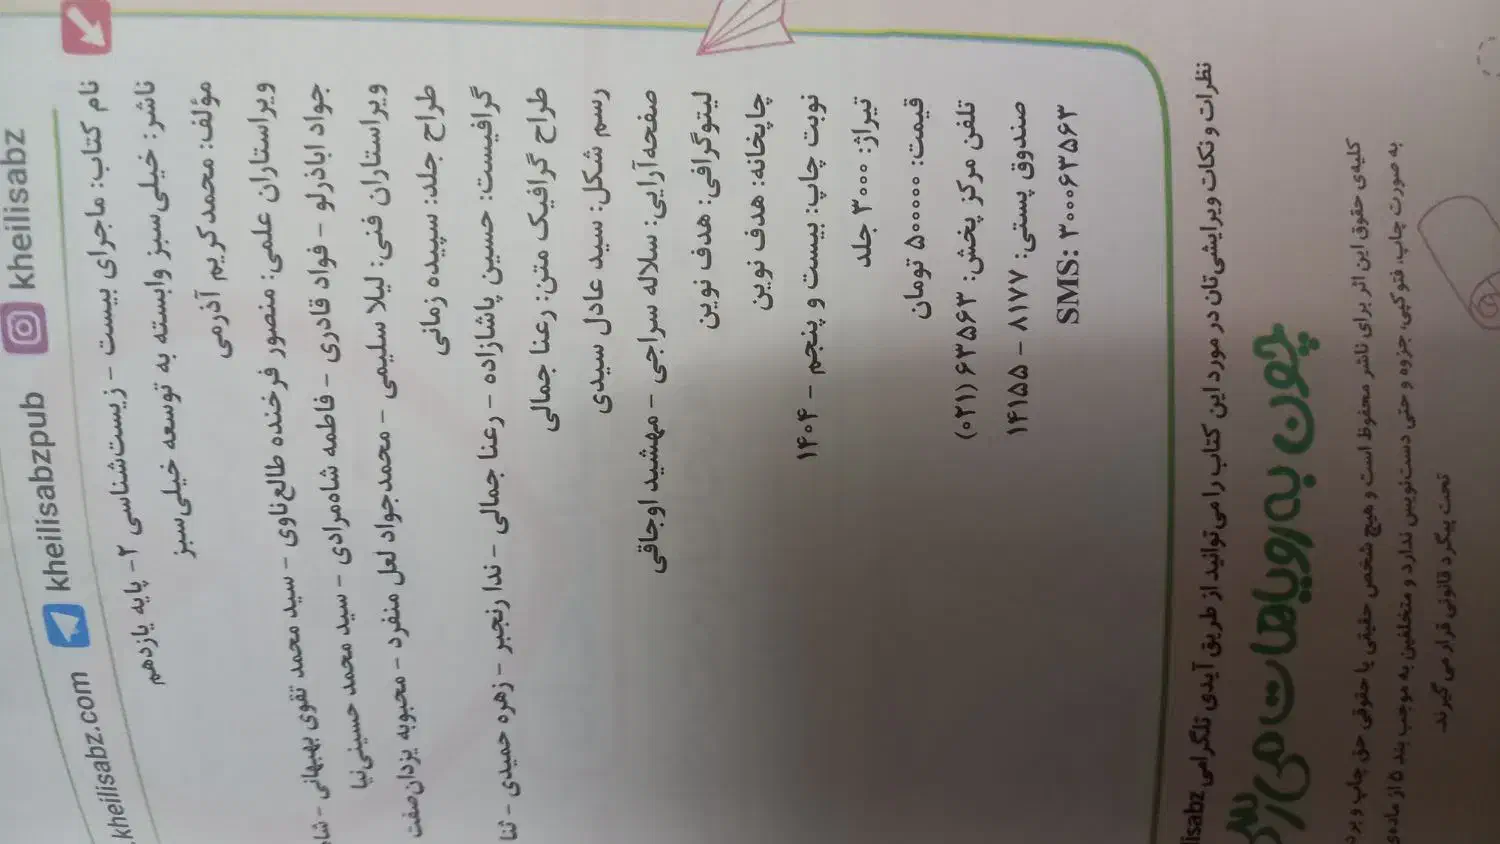 kheilisabz.com kheilisabzpub kheilisabz
نام کتاب: ماجرای بیست - زیست‌شناسی ۲- پایه یازدهم
ناشر: خیلی‌سبز وابسته به توسعه خیلی‌سبز
مؤلف: محمدکریم آذرمی
ویراستاران علمی: منصور فرخنده طالع‌ناوی - سید محمد تقوی بهبهانی -
جواد اباذرلو - فواد قادری - فاطمه شاه‌مرادی - سید محمد حسینی‌نیا
ویراستاران فنی: لیلا سلیمی - محمدجواد لعل منفرد - محبوبه یزدان‌صفت
طراح جلد: سپیده زمانی
گرافیست: حسین پاشازاده - رعنا جمالی - ندا رنجبر - زهره حمیدی - ثنا
طراح گرافیک متن: رعنا جمالی
رسم شکل: سید عادل سیدی
صفحه‌آرایی: سلاله سراجی - مهشید اوجاقی
لیتوگرافی: هدف نوین
چاپخانه: هدف نوین
نوبت چاپ: بیست و پنجم - ۱۴۰۴
تیراژ: ۳۰۰۰ جلد
قیمت: ۵۰۰۰۰۰ تومان
تلفن مرکز پخش: ۶۳۵۶۳ (۰۲۱)
صندوق پستی: ۸۱۷۷ - ۱۴۱۵۵
SMS: ۳۰۰۰۶۳۵۶۳
نظرات و نکات ویرایشی‌تان در مورد این کتاب را می‌توانید از طریق آیدی تلگرامی lisabz
چون به رویاهات می‌رسی
کلیه‌ی حقوق این اثر برای ناشر محفوظ است و هیچ شخص حقیقی یا حقوقی حق چاپ و
به صورت چاپ، فتوکپی، جزوه و حتی دست‌نویس ندارد و متخلفین به موجب بند ۵ از ماده‌ی
تحت پیگرد قانونی قرار می‌گیرند.